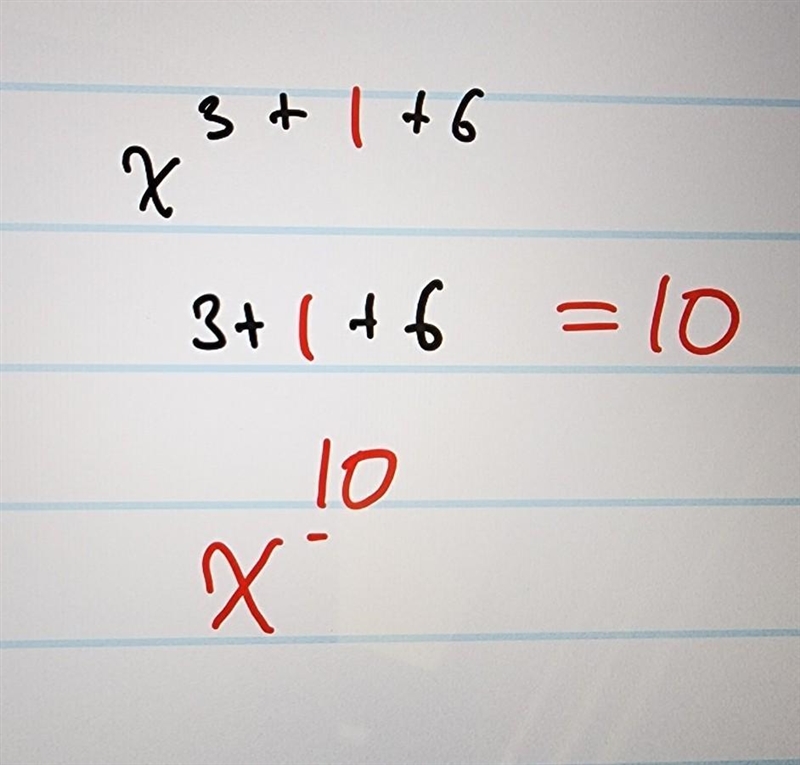 x^{3 + 1 + 6}
3 + 1 + 6 = 10
x^{-10}